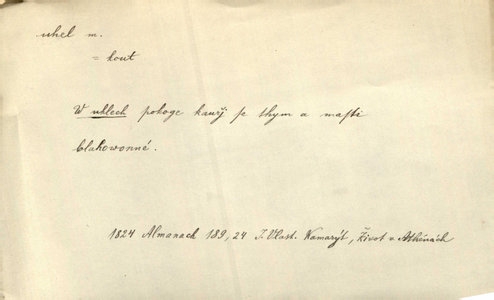 uhel m.
= kout
W uhlech pokoge kauřj se thym a masti
blahowonné.
1824 Almanach 189, 24 J. Vlast. Kamarýt, Život v Athénách